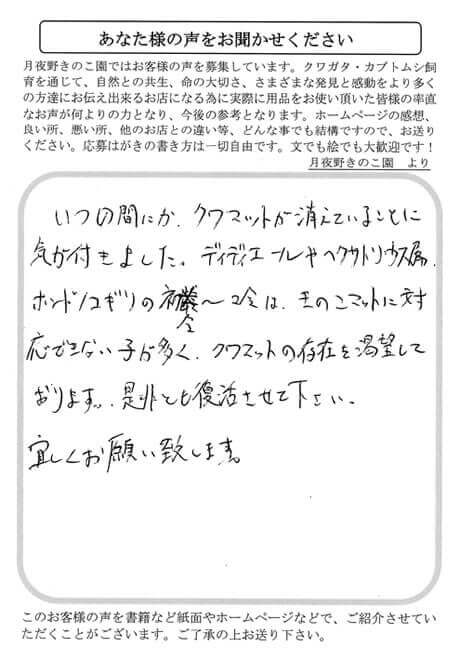 あなた様の声をお聞かせください
月夜野きのこ園ではお客様の声を募集しています。クワガタ・カブトムシ飼
育を通じて、自然との共生、命の大切さ、さまざまな発見と感動をより多く
の方達にお伝え出来るお店になる為に実際に用品をお使い頂いた皆様の率直
なお声が何よりの力となり、今後の参考となります。ホームページの感想、
良い所、悪い所、他のお店との違い等、どんな事でも結構ですので、お送り
ください。応募はがきの書き方は一切自由です。文でも絵でも大歓迎です！
月夜野きのこ園　より
いつの間にか、クワマットが消えていることに
気が付きました。ディディエールやヘクサトリウス属、
ホンドノコギリの初齢～2令は、きのこマットに対
令
応できない子が多く、クワマットの存在を渇望して
おります。是非とも復活させて下さい。
宜しくお願い致します。
このお客様の声を書籍など紙面やホームページなどで、ご紹介させてい
ただくことがございます。ご了承の上お送り下さい。